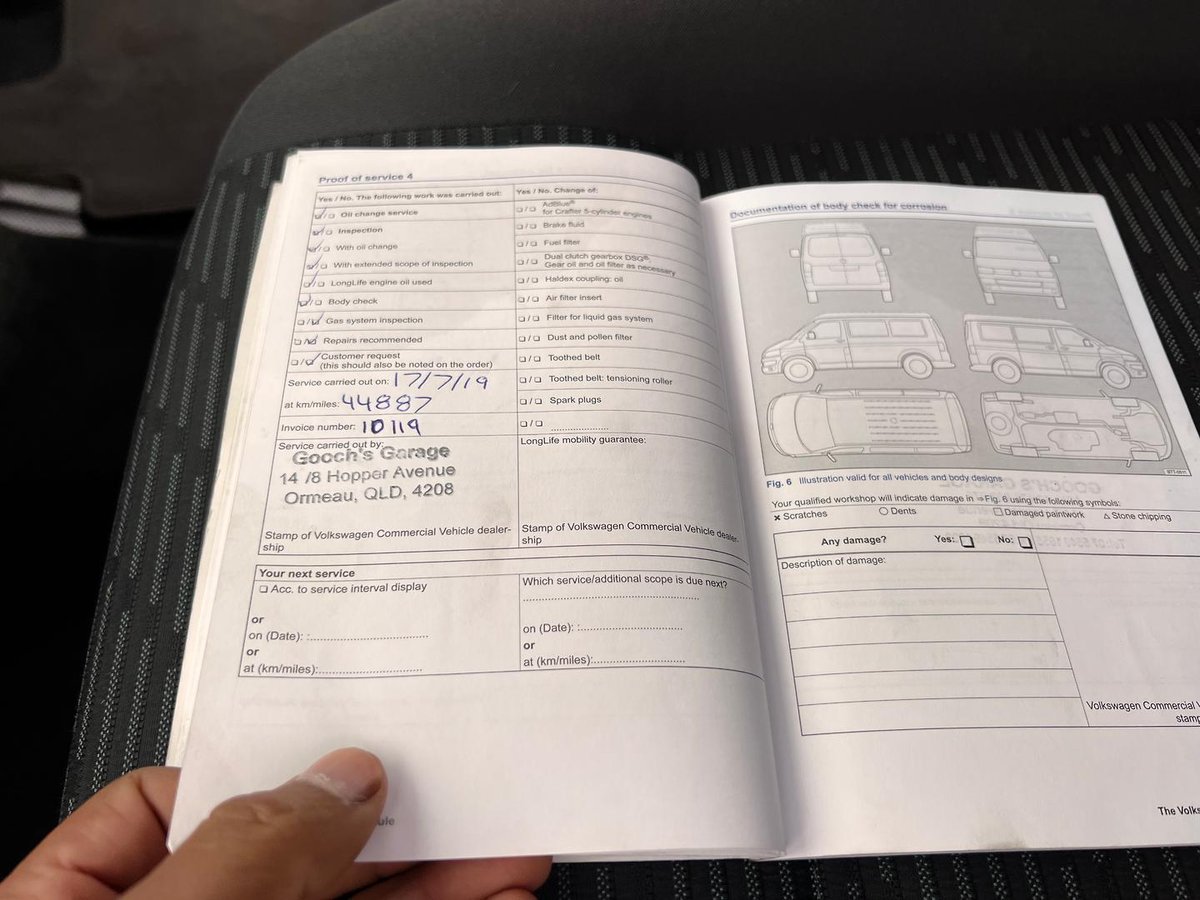 Proof of service 4
Yes / No. The following work was carried out:
☑/❑ Oil change service
☑/❑ Inspection
☑/❑ With oil change
☑/❑ With extended scope of inspection
☑/❑ LongLife engine oil used
☑/❑ Body check
❑/☑ Gas system inspection
❑/☑ Repairs recommended
❑/☑ Customer request
(this should also be noted on the order)
Service carried out on: 17/7/19
at km/miles: 44887
Invoice number: 10119
Service carried out by:
Gooch's Garage
14 /8 Hopper Avenue
Ormeau, QLD, 4208
Stamp of Volkswagen Commercial Vehicle dealer-
ship
Yes / No. Change of:
❑/❑ AdBlue®
for Crafter 5-cylinder engines
❑/❑ Brake fluid
❑/❑ Fuel filter
❑/❑ Dual clutch gearbox DSG®:
Gear oil and oil filter as necessary
❑/❑ Haldex coupling: oil
❑/❑ Air filter insert
❑/❑ Filter for liquid gas system
❑/❑ Dust and pollen filter
❑/❑ Toothed belt
❑/❑ Toothed belt: tensioning roller
❑/❑ Spark plugs
❑/❑ ......................
LongLife mobility guarantee:
Stamp of Volkswagen Commercial Vehicle dealer-
ship
Your next service
❑ Acc. to service interval display
or
on (Date): :..............................
or
at (km/miles):..........................
Which service/additional scope is due next?
............................................
on (Date): :..........................
or
at (km/miles):.......................
Documentation of body check for corrosion
Fig. 6 Illustration valid for all vehicles and body designs
Your qualified workshop will indicate damage in ⇒Fig. 6 using the following symbols:
x Scratches
○ Dents
□ Damaged paintwork
△ Stone chipping
Any damage? Yes: ❑ No: ❑
Description of damage:
Volkswagen Commercial V
stamp
The Volks
ule